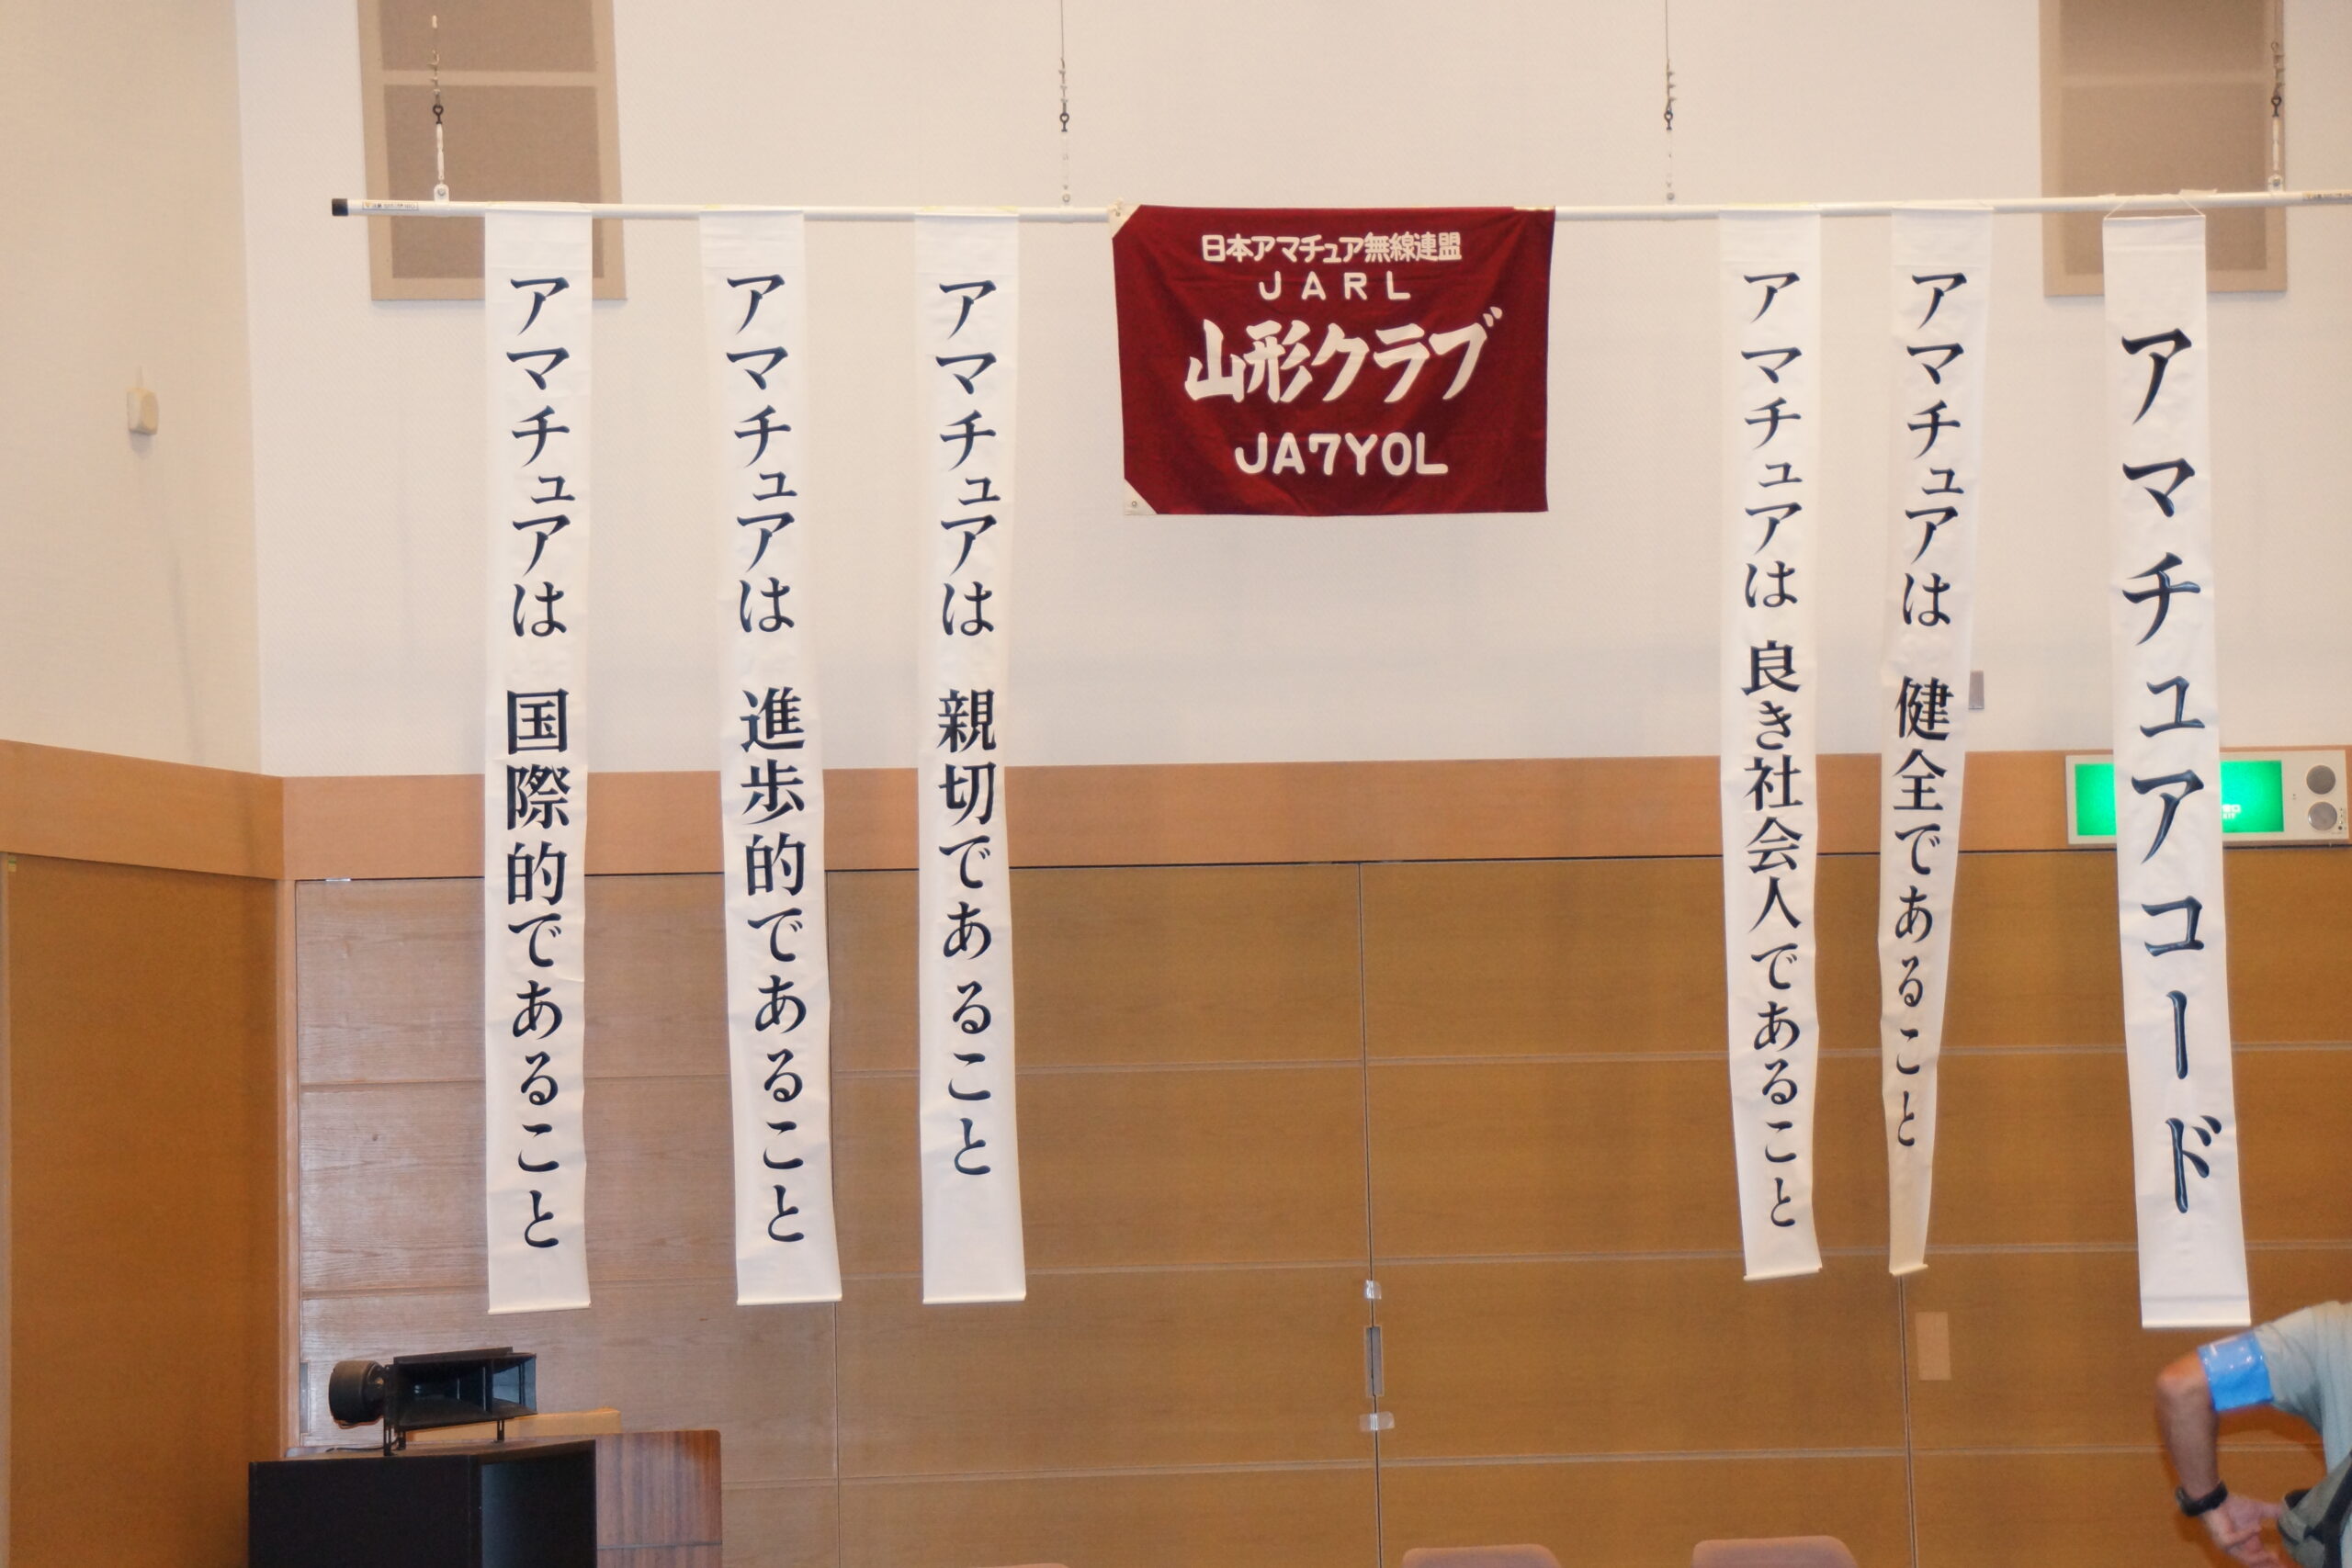 アマチュアコード
アマチュアは 健全であること
アマチュアは 良き社会人であること
日本アマチュア無線連盟
JARL
山形クラブ
JA7YOL
アマチュアは 親切であること
アマチュアは 進歩的であること
アマチュアは 国際的であること